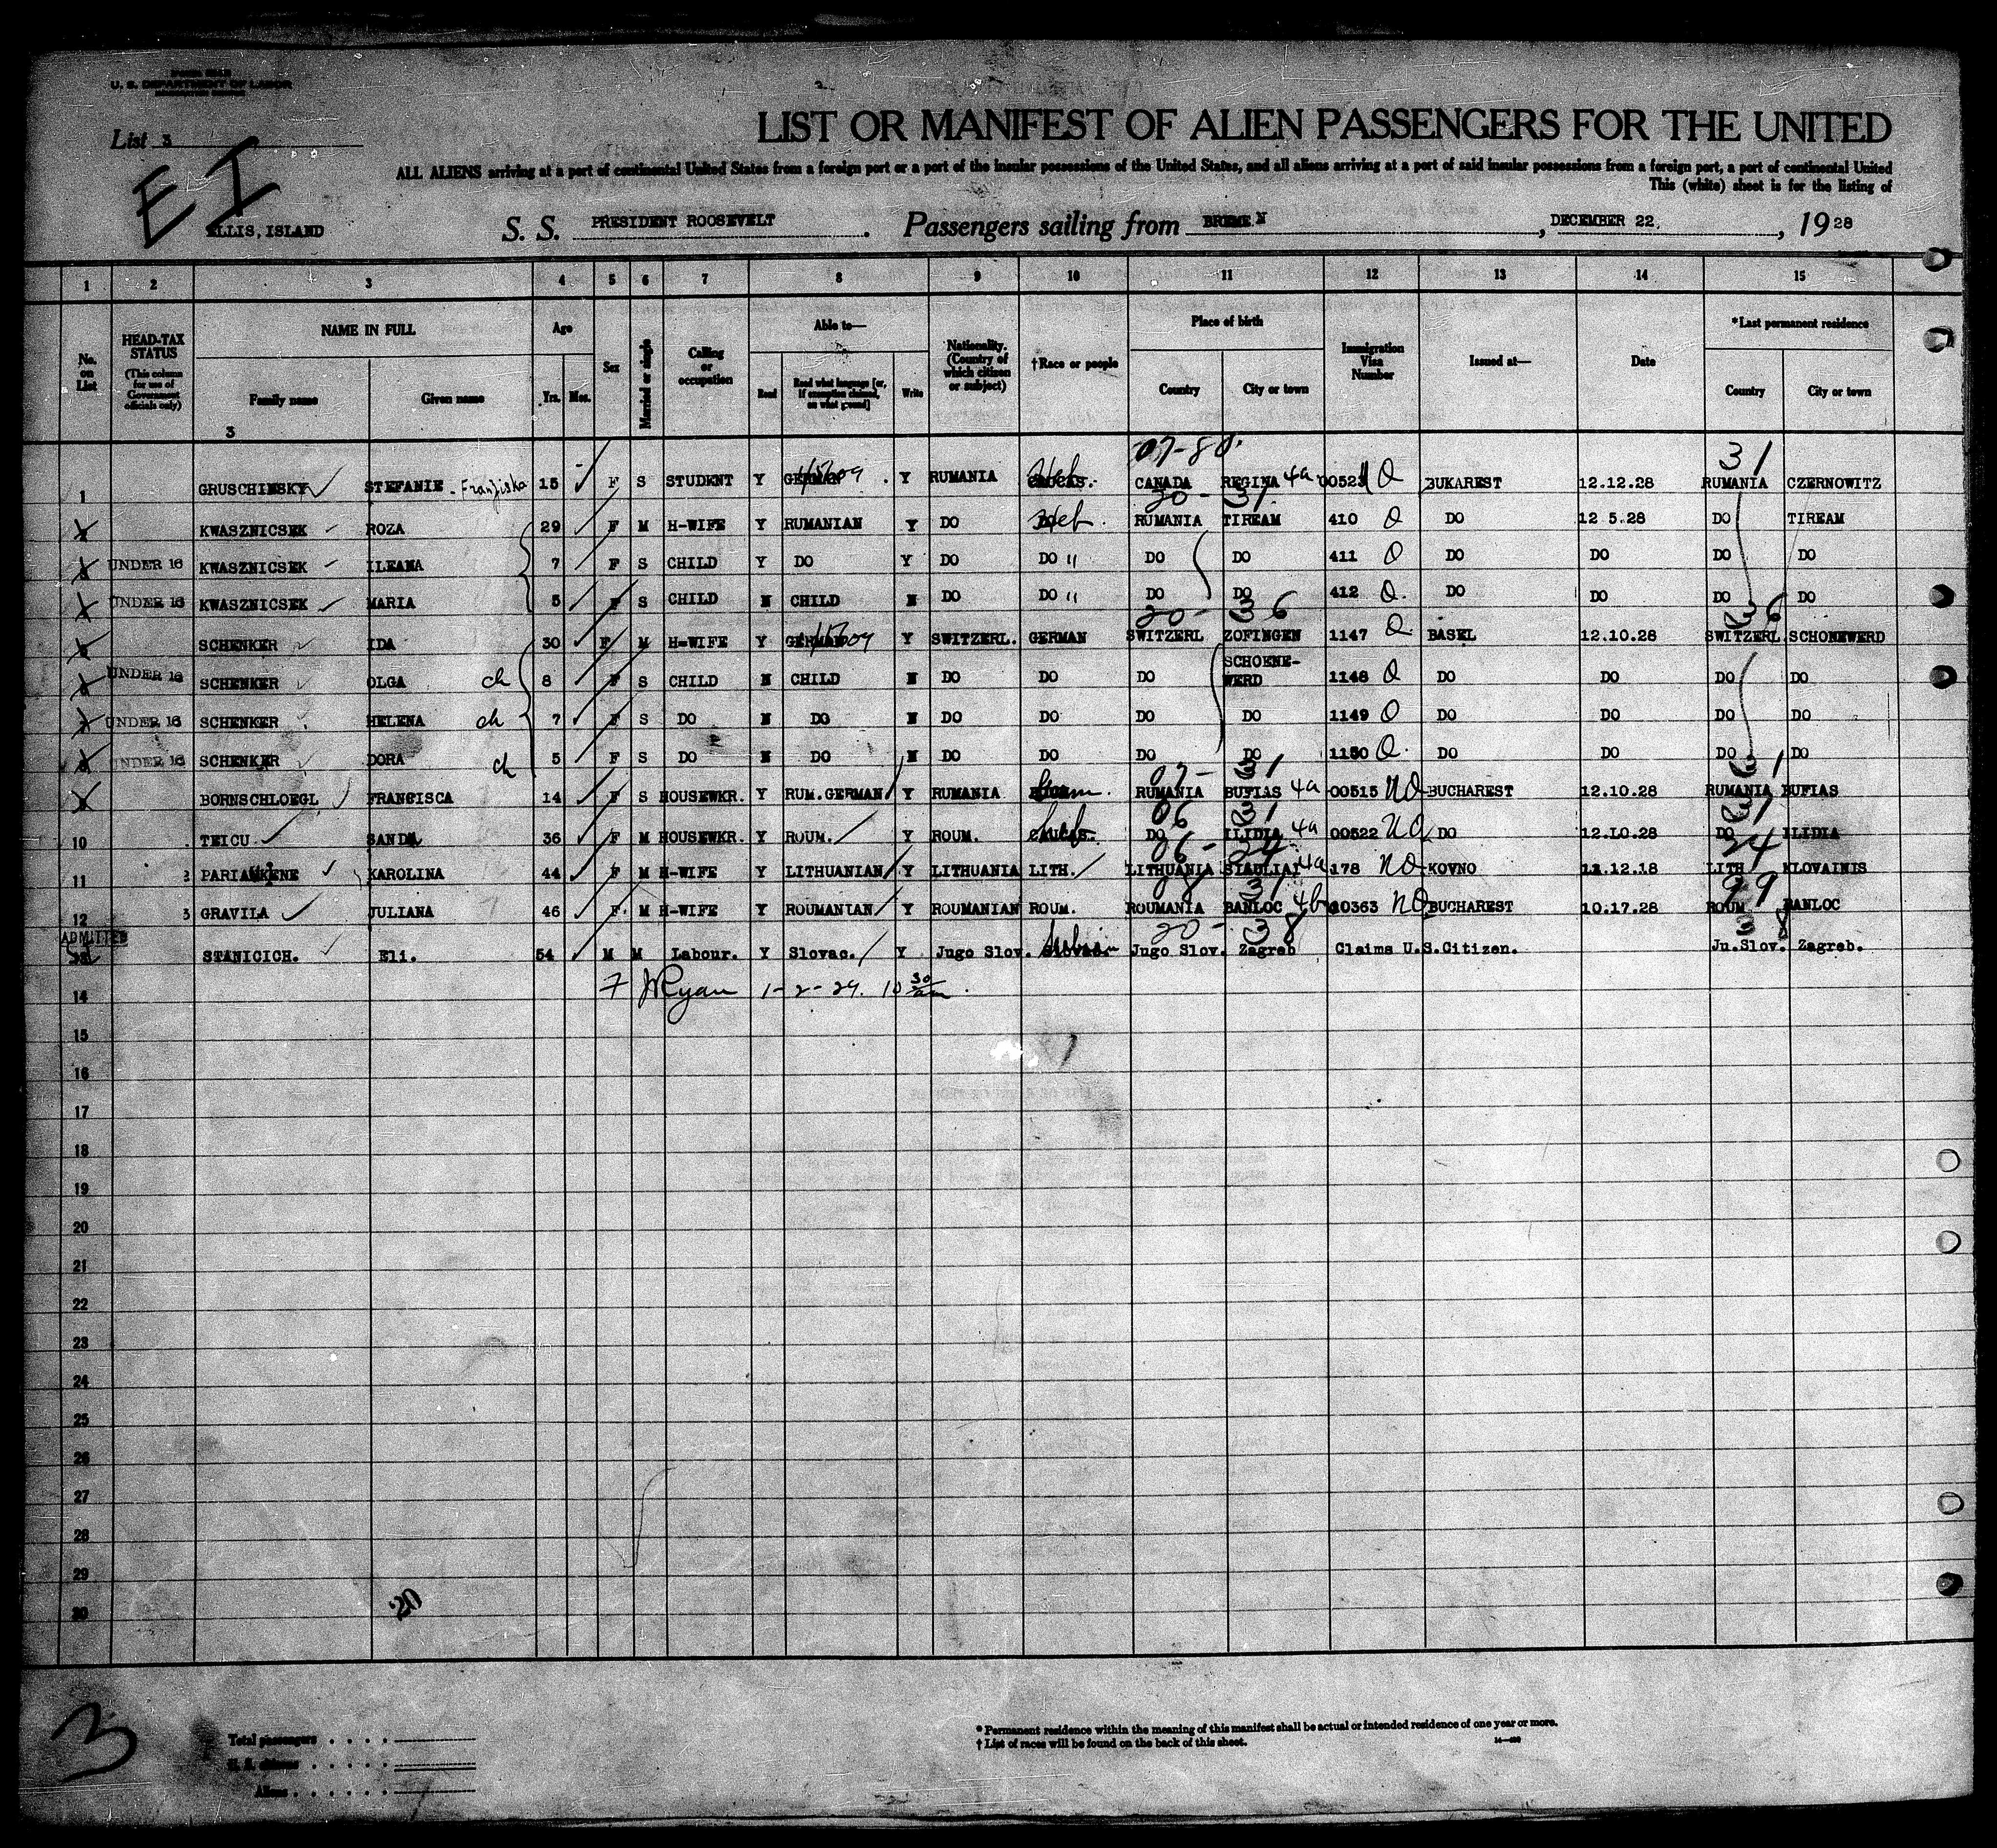 U. S. DEPARTMENT OF LABOR
List 3
EI
ELLIS, ISLAND
LIST OR MANIFEST OF ALIEN PASSENGERS FOR THE UNITED
ALL ALIENS arriving at a port of continental United States from a foreign port or a port of the insular possessions of the United States, and all aliens arriving at a port of said insular possessions from a foreign port, a port of continental United
This (white) sheet is for the listing of
S. S. PRESIDENT ROOSEVELT. Passengers sailing from BREMEN, DECEMBER 22, 1928
1 2 3 4 5 6 7 8 9 10 11 12 13 14 15
No. on List
HEAD-TAX STATUS (This column for use of Government officials only)
NAME IN FULL Family name Given name
Age Yrs. Mos.
Sex
Married or single
Calling or occupation
Able to— Read Read what language [or, if exemption claimed, on what ground] Write
Nationality. (Country of which citizen or subject)
†Race or people
Place of birth Country City or town
Immigration Visa Number
Issued at—
Date
*Last permanent residence Country City or town
3
07-80. 31
1 GRUSCHINSKY STEFANIE - Franziska 15 F S STUDENT Y GERMAN Y RUMANIA Heb CANADA REGINA 4a 00523 Q BUKAREST 12.12.28 RUMANIA CZERNOWITZ
20 - 31
KWASZNICSEK ROZA 29 F M H-WIFE Y RUMANIAN Y DO Heb. RUMANIA TIREAM 410 Q DO 12 5.28 DO TIREAM
UNDER 16 KWASZNICSEK ILEANA 7 F S CHILD Y DO Y DO DO " DO DO 411 Q DO DO DO DO
UNDER 16 KWASZNICSEK MARIA 5 F S CHILD N CHILD N DO DO " DO DO 412 Q. DO DO DO DO
20- 36 36
SCHENKER IDA 30 F M H-WIFE Y GERMAN Y SWITZERL. GERMAN SWITZERL ZOFINGEN 1147 Q BASEL 12.10.28 SWITZERL. SCHONEWERD
UNDER 16 SCHENKER OLGA ch 8 F S CHILD N CHILD N DO DO DO SCHOENE-WERD 1148 Q DO DO DO DO
UNDER 16 SCHENKER HELENA ch 7 F S DO N DO N DO DO DO DO 1149 Q DO DO DO DO
UNDER 16 SCHENKER DORA ch 5 F S DO N DO N DO DO DO DO 1150 Q. DO DO DO DO
07- 31 31
BORNSCHLOEGL FRANCISCA 14 F S HOUSEWKR. Y RUM.GERMAN Y RUMANIA RUMANIA BUFIAS 4a 00515 NQ BUCHAREST 12.10.28 RUMANIA BUFIAS
06 31 31
10 TEICU SANDA 36 F M HOUSEWKR. Y ROUM. Y ROUM. CAUCAS. DO ILIDIA 4a 00522 NQ DO 12.10.28 DO ILIDIA
06- 24 24
11 2 KAROLINA 44 F M H-WIFE Y LITHUANIAN Y LITHUANIA LITH. LITHUANIA SIAULIAI 4a 178 NQ KOVNO 11.12.18 LITH KLOVAINIS
08 31 29
12 3 GRAVILA JULIANA 46 F. M H-WIFE Y ROUMANIAN Y ROUMANIAN ROUM. ROUMANIA BANLOC 4b 00363 NQ BUCHAREST 10.17.28 ROUM BANLOC
20- 38 38
ADMITTED
STANICICH. Eli. 54 M M Labour. Y Slovac. Y Jugo Slov. Serbian Jugo Slov. Zagreb Claims U.S.Citizen. Ju.Slov. Zagreb.
14 7 JRyan 1-2-29. 10 30/am.
15
16
17
18
19
20
21
22
23
24
25
26
27
28
29
30
20
3
Total passengers . . . .
U. S. citizens . . . . .
Aliens . . . . . .
* Permanent residence within the meaning of this manifest shall be actual or intended residence of one year or more.
† List of races will be found on the back of this sheet.